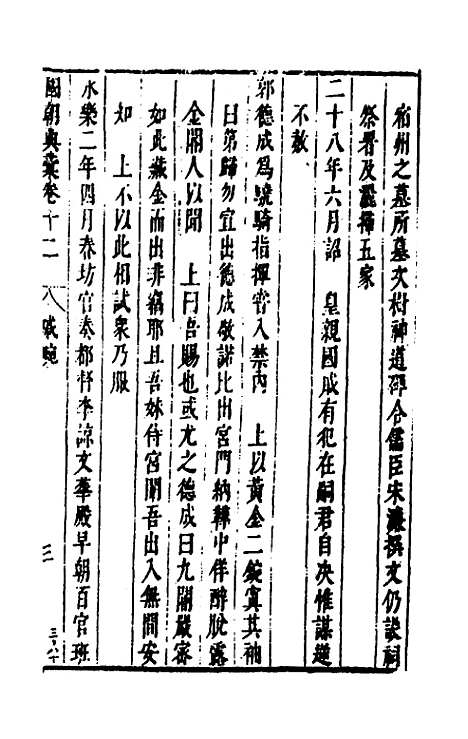 宿州之墓所墓文樹神道碑令儒臣宋濂撰文仍設祠
祭署及灑掃五家
二十八年六月詔　皇親國戚有犯在嗣君自决惟謀逆
不赦
郭德成為驍騎指揮嘗入禁內　上以黃金二錠寘其袖
曰第歸勿宣出德成敬諾比出宮門納鞾中佯醉脫露
金閽人以聞　上曰吾賜也或尤之德成曰九關嚴密
如此藏金而出非竊耶且吾妹侍宮闈吾出入無間安
知　上不以此相試衆乃服
永樂二年四月春坊官奏都督李諒文華殿早朝百官班
國朝典彙卷十二　戚畹　三